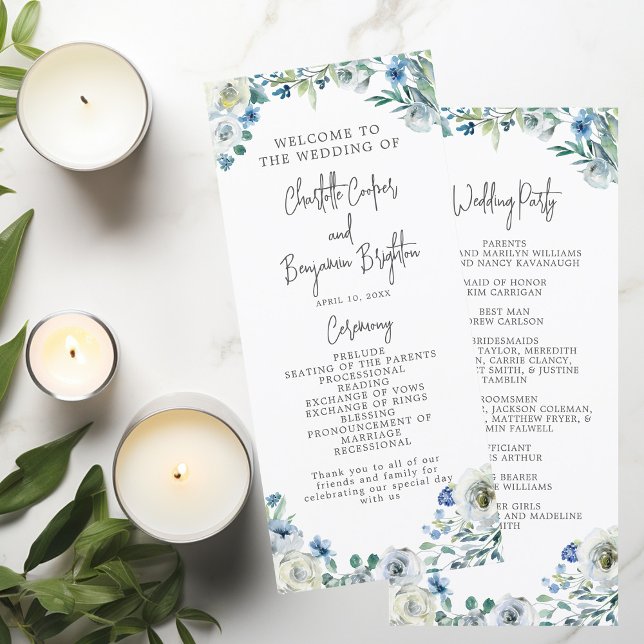 WELCOME TO
THE WEDDING OF
Charlotte Cooper
and
Benjamin Brighton
APRIL 10, 20XX
Ceremony
PRELUDE
SEATING OF THE PARENTS
PROCESSIONAL
READING
EXCHANGE OF VOWS
EXCHANGE OF RINGS
BLESSING
PRONOUNCEMENT OF
MARRIAGE
RECESSIONAL
Thank you to all of our
friends and family for
celebrating our special day
with us
Wedding Party
PARENTS
AND MARILYN WILLIAMS
AND NANCY KAVANAUGH
MAID OF HONOR
KIM CARRIGAN
BEST MAN
CARLSON
BRIDESMAIDS
TAYLOR, MEREDITH
CARRIE CLANCY,
SMITH, & JUSTINE
TAMBLIN
JACKSON COLEMAN,
MATTHEW FRYER, &
FALWELL
ARTHUR
BEARER
WILLIAMS
GIRLS
AND MADELINE
SMITH